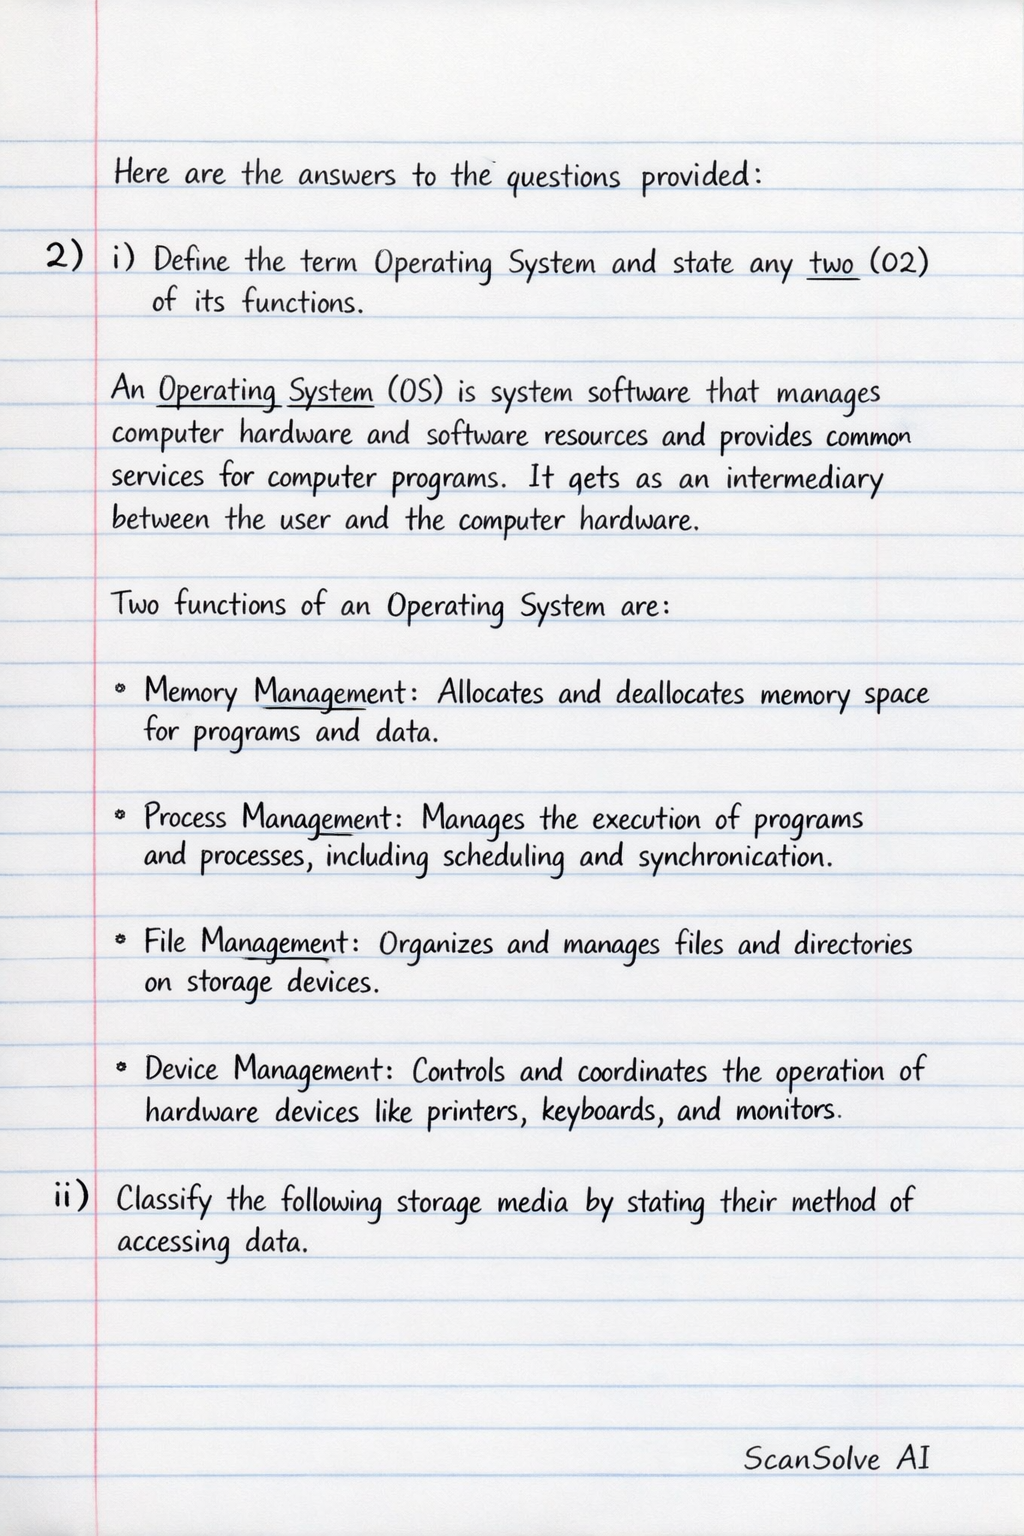 Here are the answers to the questions provided:
2) i) Define the term Operating System and state any two (02)
of its functions.
An Operating System (OS) is system software that manages
computer hardware and software resources and provides common
services for computer programs. It gets as an intermediary
between the user and the computer hardware.
Two functions of an Operating System are:
• Memory Management: Allocates and deallocates memory space
for programs and data.
• Process Management: Manages the execution of programs
and processes, including scheduling and synchronication.
• File Management: Organizes and manages files and directories
on storage devices.
• Device Management: Controls and coordinates the operation of
hardware devices like printers, keyboards, and monitors.
ii) Classify the following storage media by stating their method of
accessing data.
ScanSolve AI